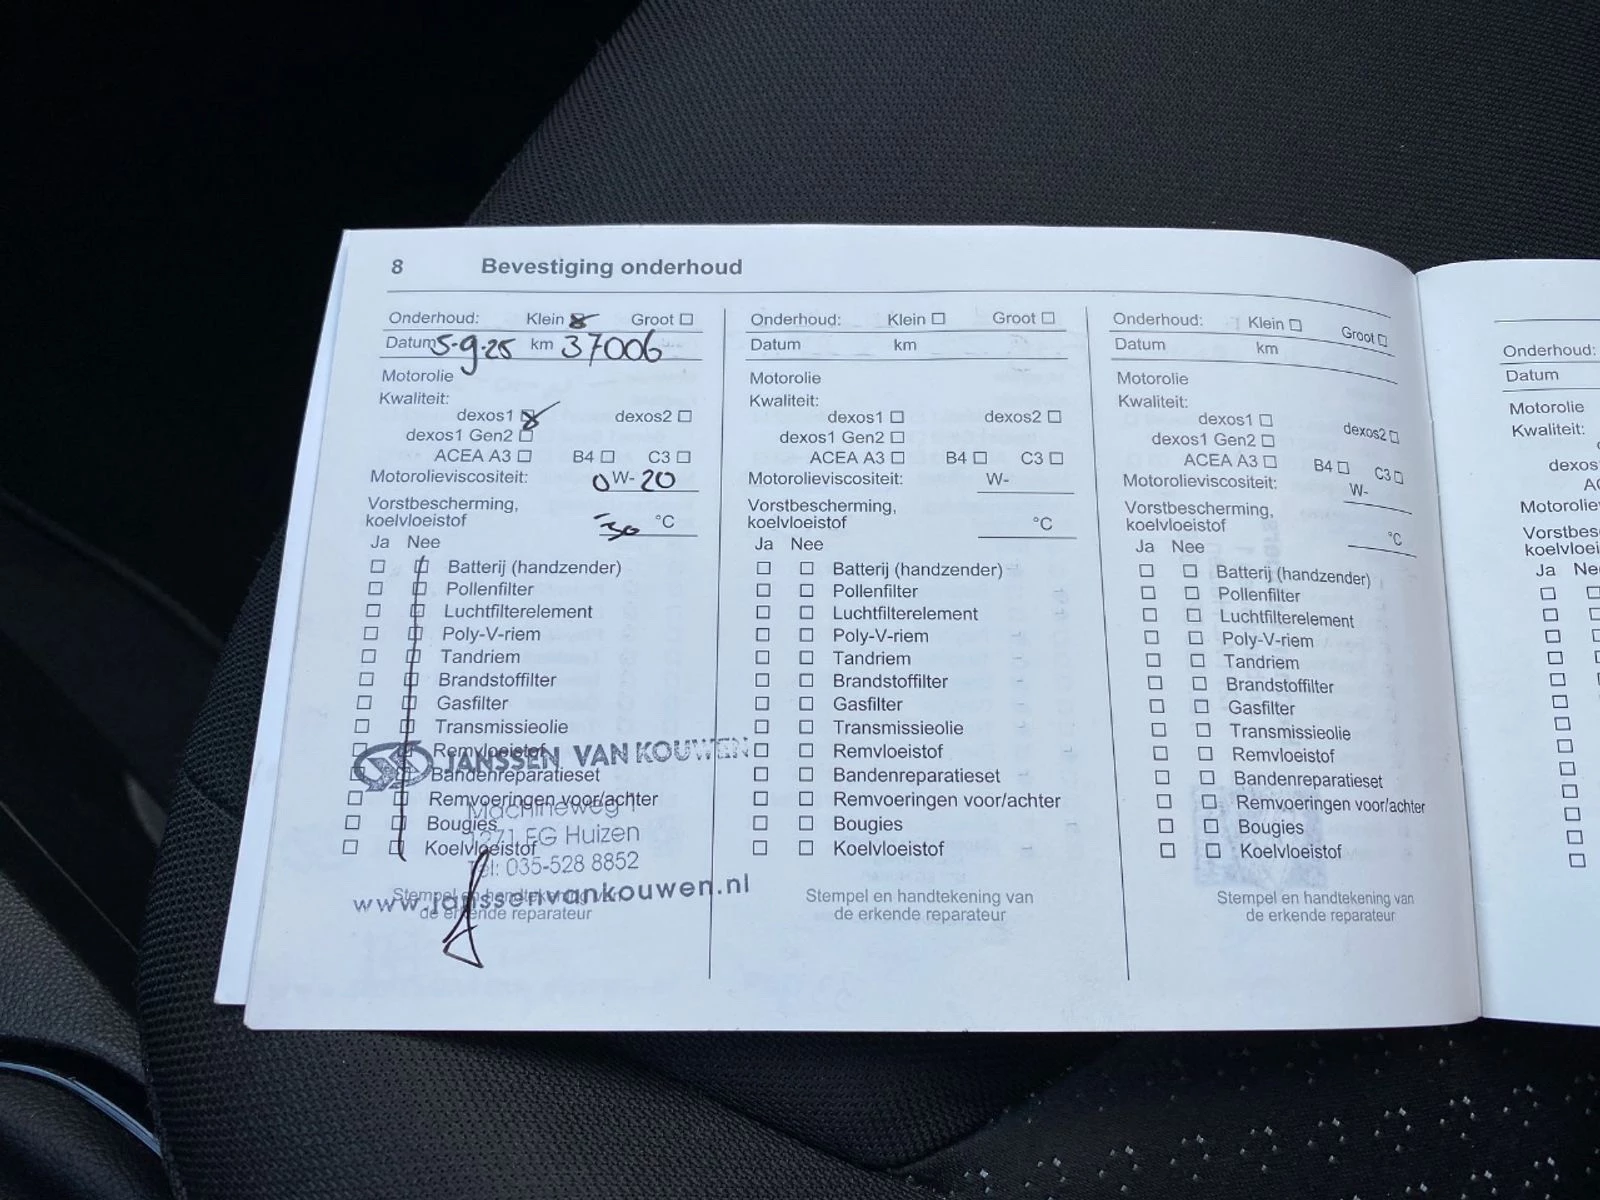 8 Bevestiging onderhoud
Onderhoud: Klein Groot
Datum 5-9-25 km 37006
Motorolie
Kwaliteit:
dexos1 dexos2
dexos1 Gen2
ACEA A3 B4 C3
Motorolieviscositeit: 0W-20
Vorstbescherming,
koelvloeistof -30 °C
Ja Nee
Batterij (handzender)
Pollenfilter
Luchtfilterelement
Poly-V-riem
Tandriem
Brandstoffilter
Gasfilter
Transmissieolie
Remvloeistof
Bandenreparatieset
Remvoeringen voor/achter
Bougies
Koelvloeistof
Stempel en handtekening van
de erkende reparateur
JANSSEN VAN KOUWEN
Machineweg 1
1271 EG Huizen
Tel: 035-528 8852
www.janssenvankouwen.nl
Onderhoud: Klein Groot
Datum km
Motorolie
Kwaliteit:
dexos1 dexos2
dexos1 Gen2
ACEA A3 B4 C3
Motorolieviscositeit: W-
Vorstbescherming,
koelvloeistof °C
Ja Nee
Batterij (handzender)
Pollenfilter
Luchtfilterelement
Poly-V-riem
Tandriem
Brandstoffilter
Gasfilter
Transmissieolie
Remvloeistof
Bandenreparatieset
Remvoeringen voor/achter
Bougies
Koelvloeistof
Stempel en handtekening van
de erkende reparateur
Onderhoud: Klein Groot
Datum km
Motorolie
Kwaliteit:
dexos1 dexos2
dexos1 Gen2
ACEA A3 B4 C3
Motorolieviscositeit: W-
Vorstbescherming,
koelvloeistof °C
Ja Nee
Batterij (handzender)
Pollenfilter
Luchtfilterelement
Poly-V-riem
Tandriem
Brandstoffilter
Gasfilter
Transmissieolie
Remvloeistof
Bandenreparatieset
Remvoeringen voor/achter
Bougies
Koelvloeistof
Stempel en handtekening van
de erkende reparateur
Onderhoud:
Datum
Motorolie
Kwaliteit:
dexos
AC
Motorolie
Vorstbes
koelvloei
Ja Nee